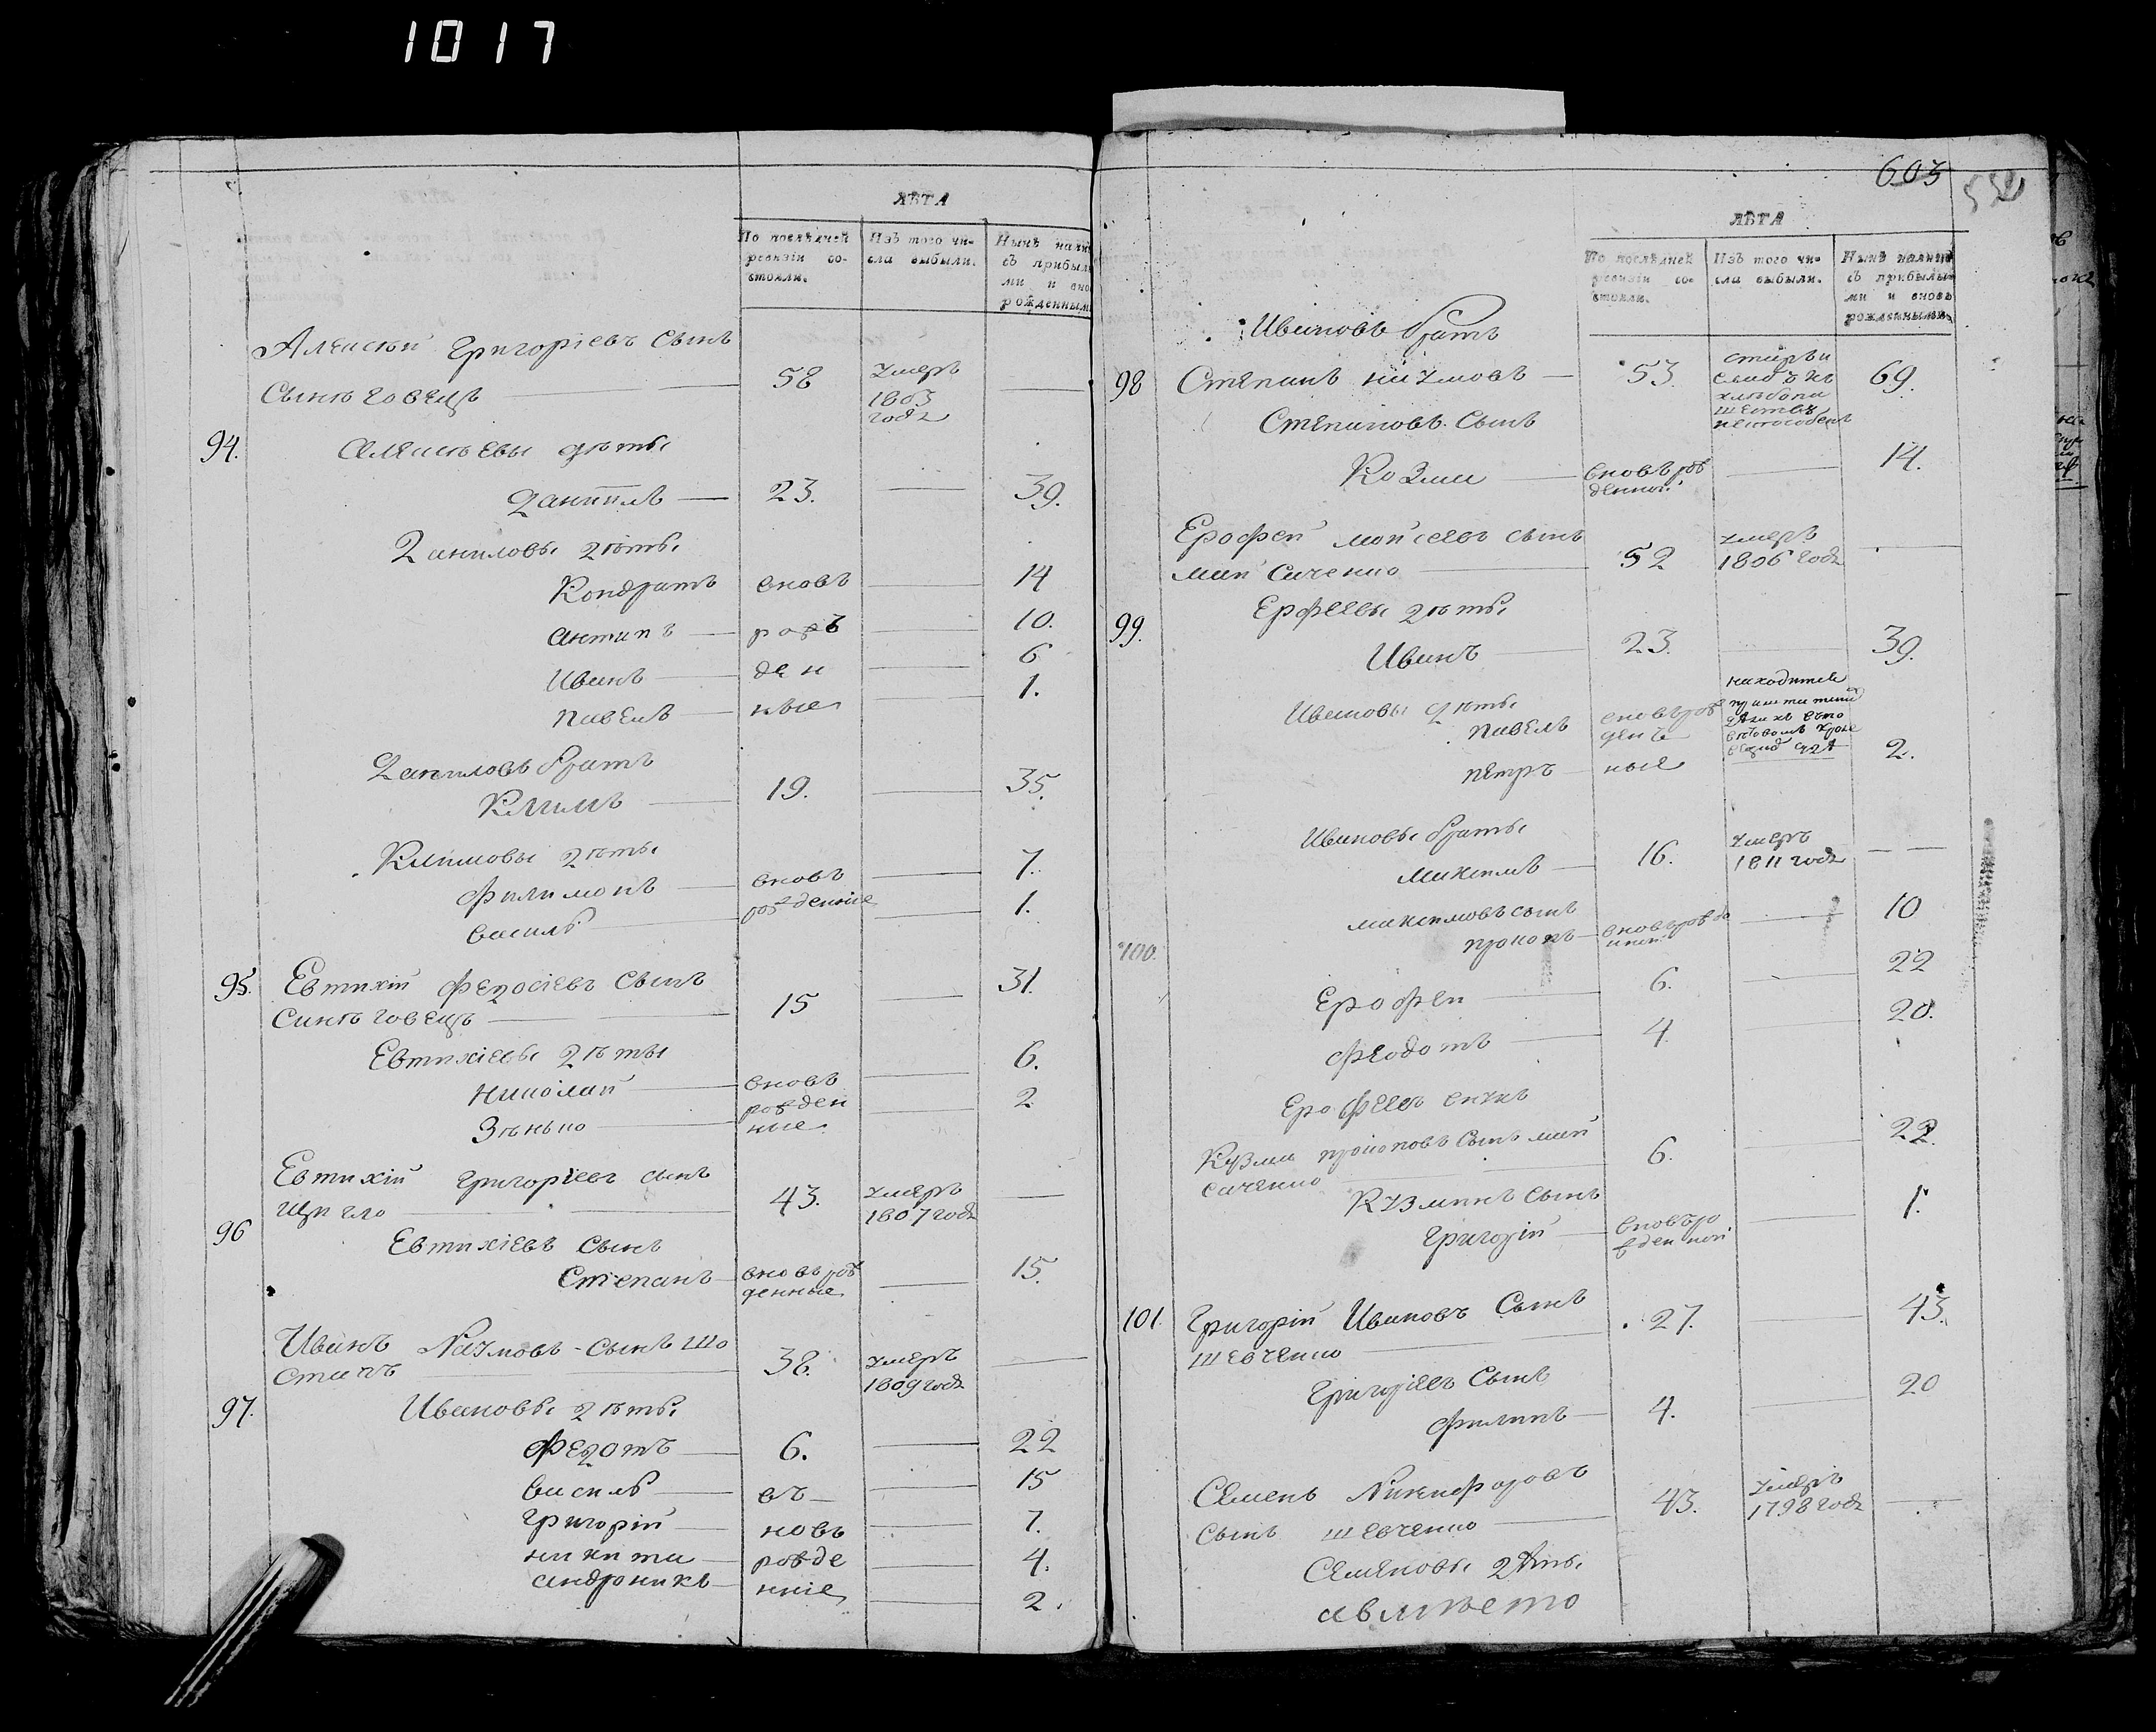 1017
ЛѢТА
По послѣдней ревизіи состояли.
Изъ того числа выбыли.
Нынѣ налич съ прибылы ми и вно рожденным
Алексѣй Григоріевъ Сынъ 58 умеръ
Синеговецъ 1803 года
94. Алексѣевы дѣти
Даніилъ 23. 39.
Даниловы дѣти
Кондратъ вновь 14
Антипъ рож 10.
Иванъ ден 6
Павелъ ные 1.
Даниловъ братъ
Климъ 19. 35.
Климовы дѣти
Филимонъ вновь 7.
Василь рожденніе 1.
95. Евтихій Федосіевъ Сынъ 31.
Синѣговецъ 15
Евтихіевы дѣти
Николай вновь 6.
Зѣнько рожден 2
ные
Евтихій Григоріевъ сынъ
43. умеръ
1807 года
96 Евтихіевъ Сынъ
Степанъ вновь рож 15.
денные
Иванъ Наумовъ Сынъ Шо
стакъ 38. умеръ
1809 года
97. Ивановы дѣти
Федотъ 6. 22
Василь въ 15
Григорій новь 7.
Никита рожде 4.
Андроникъ нніе 2.
603
ЛѢТА
По послѣдней ревизіи состояли.
Изъ того числа выбыли.
Нынѣ налицо съ прибылыми и вновь рожденными.
Ивановъ братъ
98 Степанъ Наумовъ 53. старъ и 69.
слабъ къ
хлѣбопа
шеству
неспособенъ
Степановъ Сынъ
Козма вновь рож 14.
денной
Ерофей Мойсеевъ сынъ 52 умеръ
Майсиченко 1806 года
99. Ерофеевы дѣти
Иванъ 23. 39.
Ивановы дѣти
находится
Павелъ вновь рож
ден
Петръ ные 2.
Ивановы братьи
Максимъ 16. умеръ
1811 года
Максимовъ сынъ
Прокопъ вновь рожде 10
нной
100.
Ерофей 6. 22
Федотъ 4. 20.
Ерофеевъ внукъ
Кузма Прокоповъ Сынъ Май 6. 22.
сиченко
Кузминъ Сынъ
Григорій вновь ро 1.
жденной
101. Григорій Ивановъ Сынъ 27. 43.
Шевченко
Григоріевъ Сынъ
Филипъ 4. 20
Семенъ Никифоровъ 43. умеръ
Сынъ Шевченко 1798 года
Семеновы дѣти